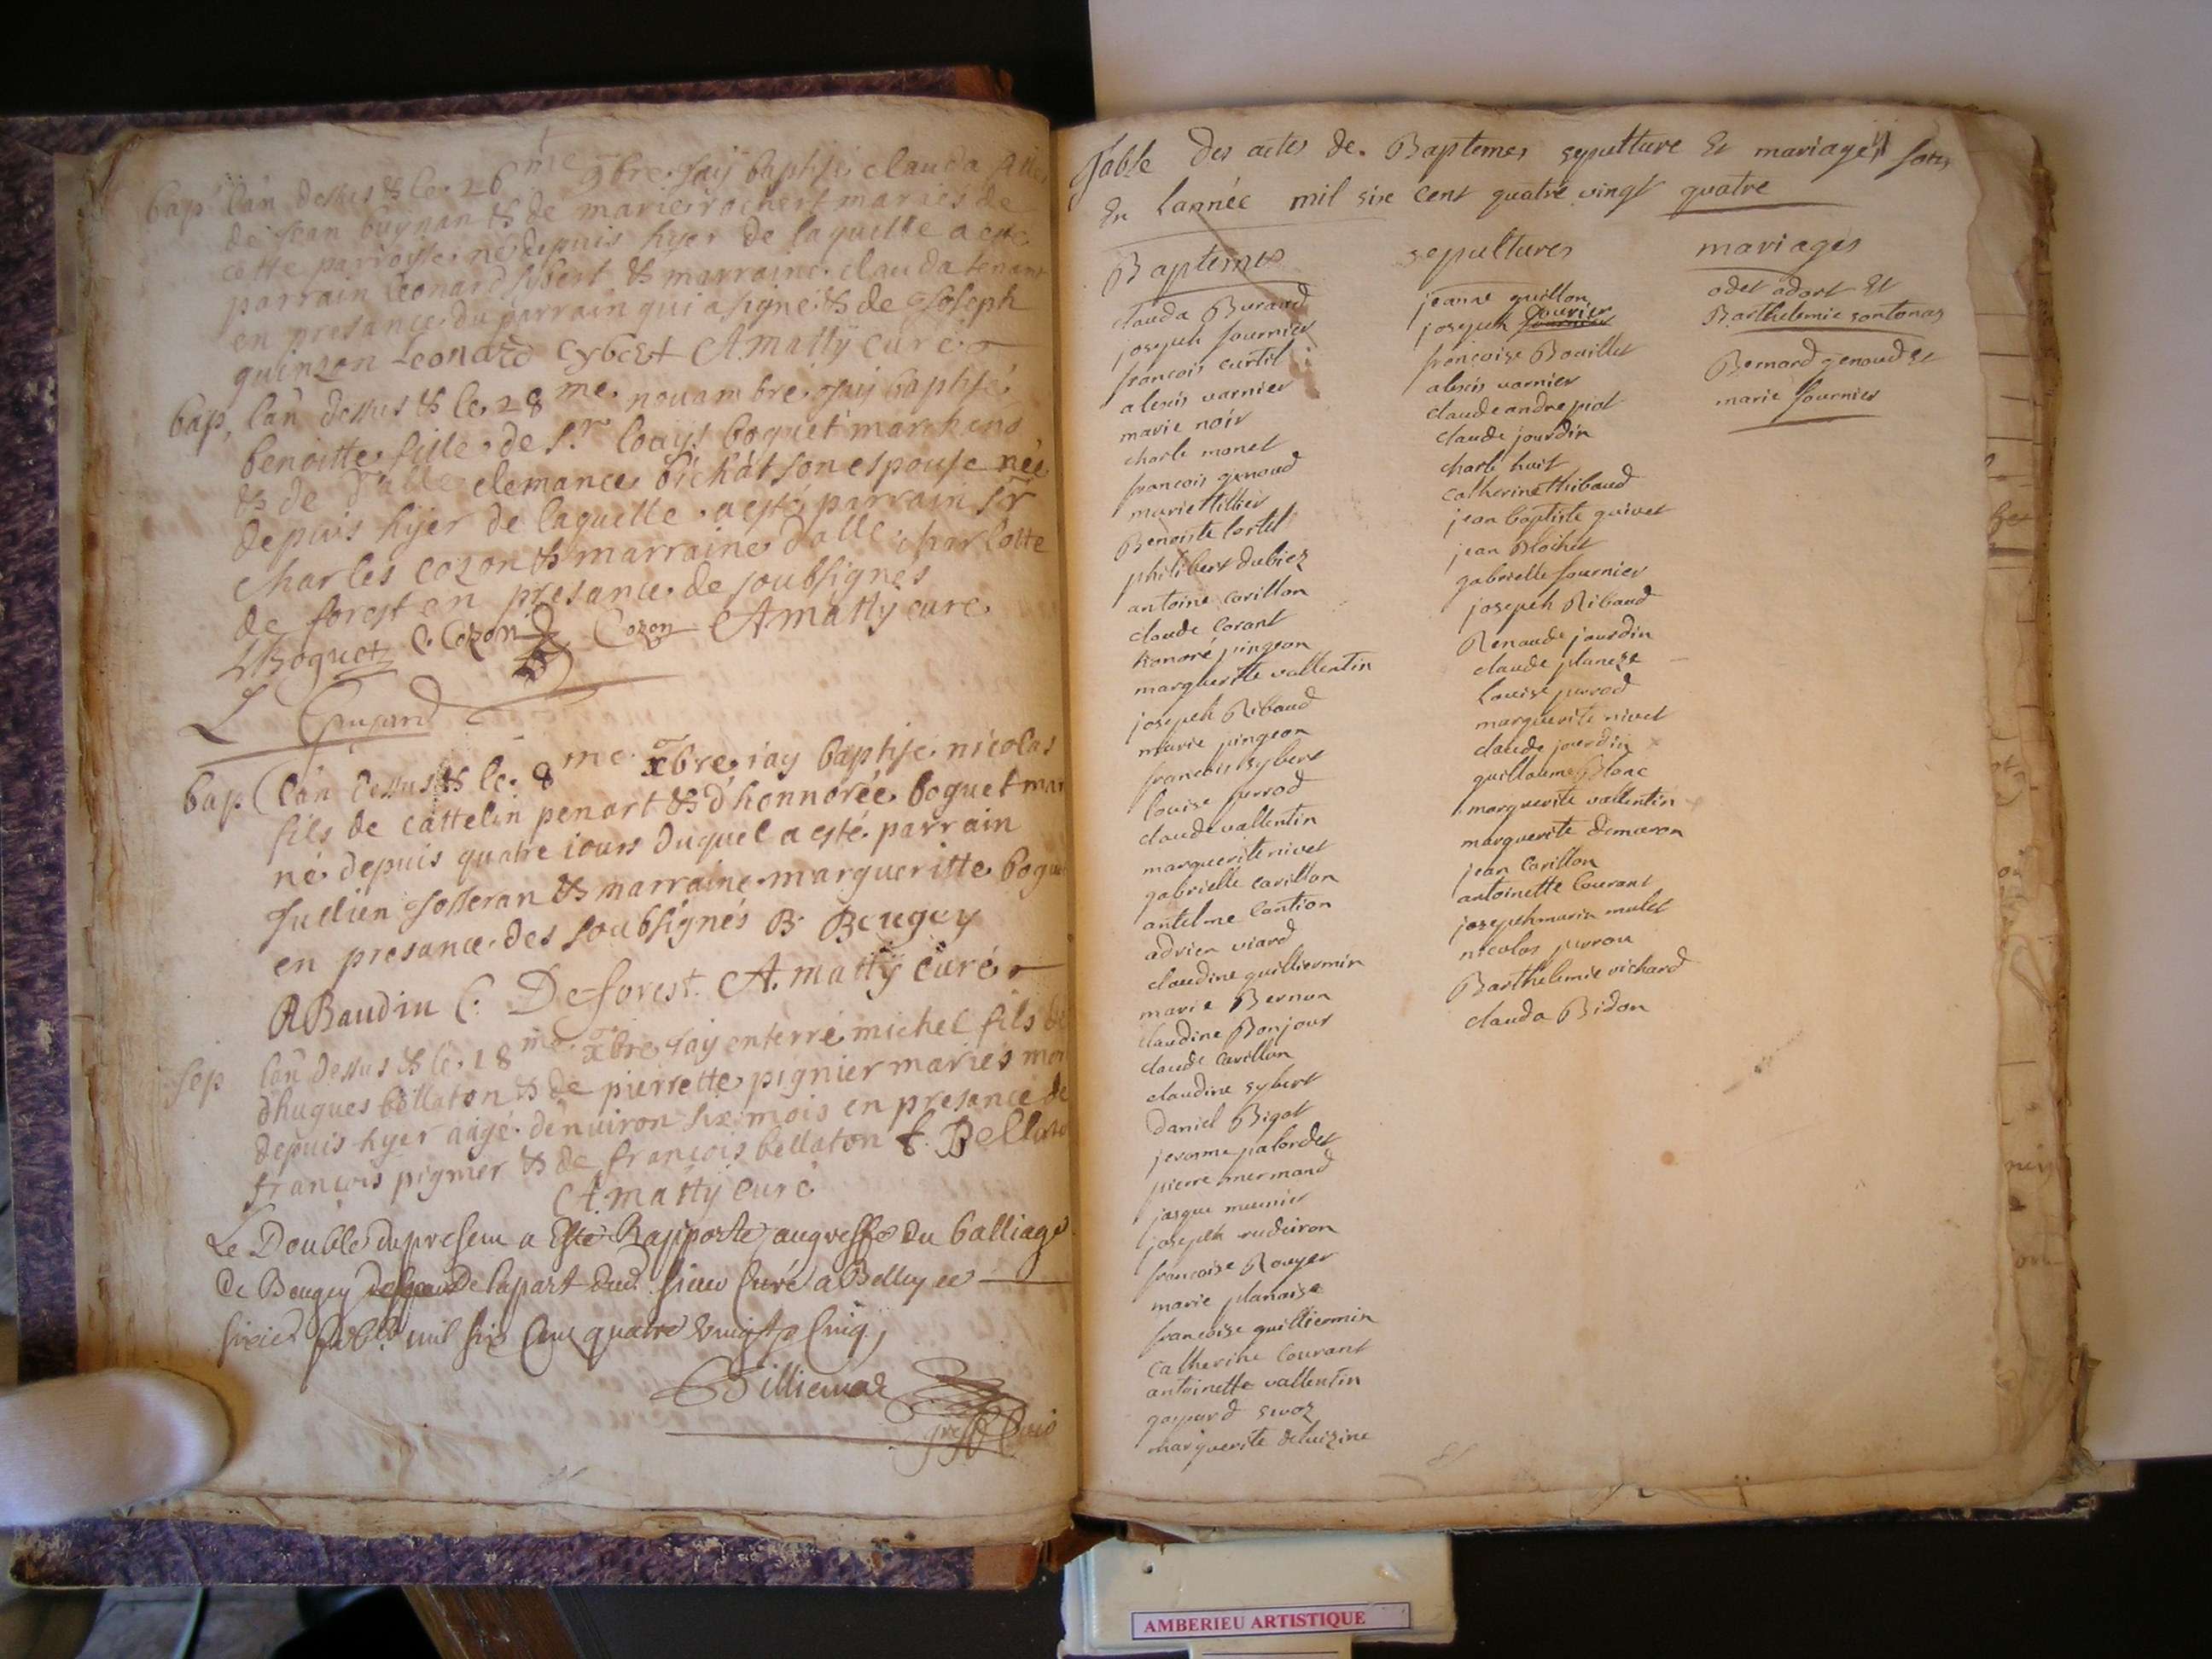 bap lan dessus & le 26 me 9bre jay baptisé clauda fille
de Jean buynan & de marie rochert mariés de
cette parroisse née depuis hyer de laquelle a esté
parrain Leonard sybert & marraine clauda tenant
en presance du parrain qui a signé & de Joseph
quinson Leonard cybert A. matty curé
bap, lan dessus & le 28 me nouambre jay baptisé
benoitte fille de Sr louys boguet marchand
& de dalle clemance bichat son espouse née
depuis hyer de laquelle a esté parrain Sr
Charles cozon & marraine dalle charlotte
de forest en presance de soubsignés
LBoguet C. Cozon Cozon A matty curé
bap lan dessus & le 8 me xbre jay baptisé nicolas
fils de cattelin penart & d'honnorée boguet
né depuis quatre iours duquel a esté parrain
Jullien Josseran & marraine margueritte
en presance des soubsignés B. Beugey
R Baudin C. Deforest A. matty curé
sep lan dessus & le 18 me xbre jay enterré michel fils
dhugues bellaton & de pierrette pignier mariés
depuis hyer aagé denuiron six mois en presance de
françois pignier & de françois bellaton f.
A. matty curé
Le Double du present a Este Rapporté au greffe du balliage
de Beugey de la part dud. sieur Curé a Belley ce
sixie mil six Cent quatre vingtz Cinq
Table des actes de Baptemes sepulture Et mariages faits
En Lannée mil six Cent quatre vingt quatre
Baptemes
clauda Buraud
joseph fournier
francois curtil
alexis varnier
marie noir
charle monet
francois genoud
marie tillier
Benoiste lortel
philibert dubiez
antoine carillon
claude Corant
honoré pingeon
marguerite vallentin
joseph Ribaud
marie pingeon
francois sybert
louise perrod
claude vallentin
marguerite nivet
gabrielle carillon
antelme Cantion
adrien viard
claudine guilliermin
marie Bernon
claudine Bonjour
claude Carillon
claudine sybert
Daniel Bigot
jerome palordet
pierre mermand
jasque meunier
joseph rudeiron
francoise Rouyer
marie planaise
francoise guilliermin
Catherine Courant
antoinette vallentin
gaspard
marguerite
sepultures
jeanne guillon
joseph fournier
francoise Bouillet
alexis varnier
claude andre piot
claude jourdin
charle huit
catherine thibaud
jean baptiste quivet
jean Blochet
gabrielle fournier
joseph Ribaud
Renaude jourdin
claude planeze
louise perrod
marguerite nivet
claude jourdin
guillaume Blanc
marguerite vallentin
marguerite demaron
jean Carillon
antoinette Courant
joseph marin mulet
nicolas perrou
Barthelemie richard
clauda Bidon
mariages
odet adort Et
Barthelemie sontonas
Bernard genoud Et
marie fournier
AMBERIEU ARTISTIQUE